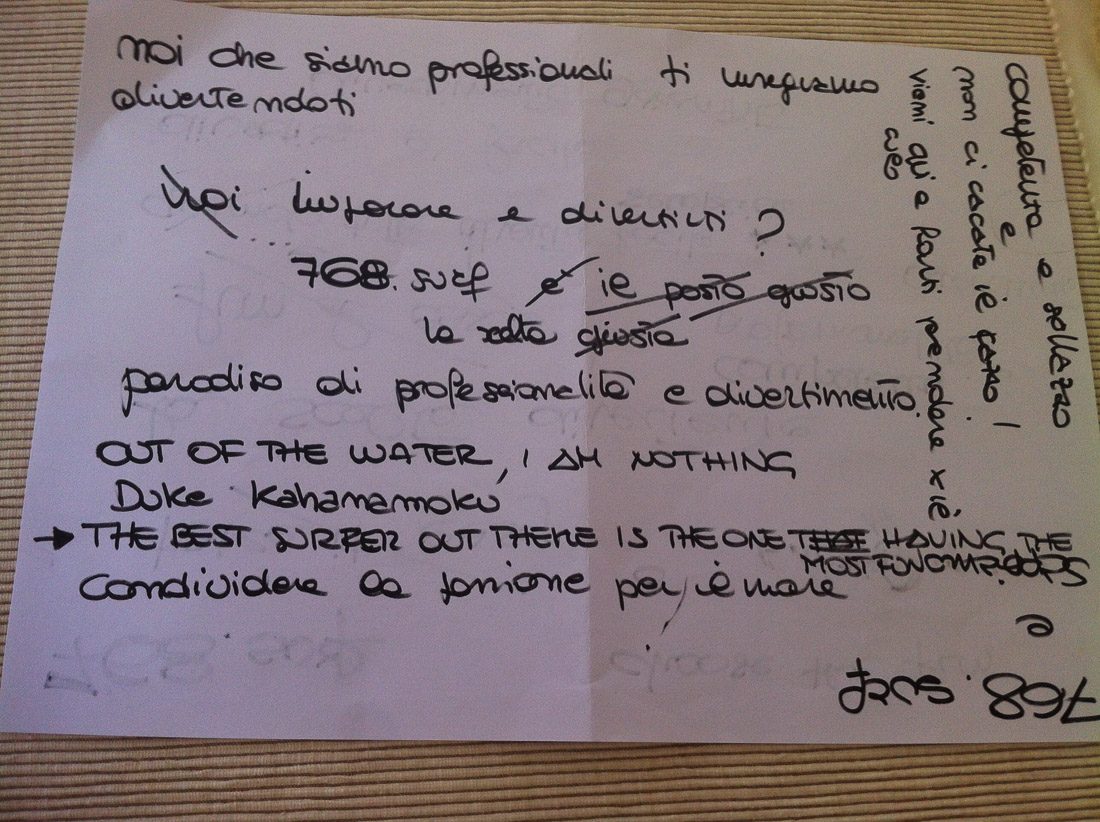 noi che siamo professionali ti insegniamo
divertendoti
Vuoi imparare e divertirti?
768.surf è il posto giusto
la scelta giusta
paradiso di professionalità e divertimento
OUT OF THE WATER, I AM NOTHING
Duke Kahanamoku
→ THE BEST SURFER OUT THERE IS THE ONE THAT HAVING THE
MOST FUN
Condividere la passione per il mare
competenza e sollazzo
e
non ci cacate il cazzo!
vieni qui a farti prendere x il
768.surf